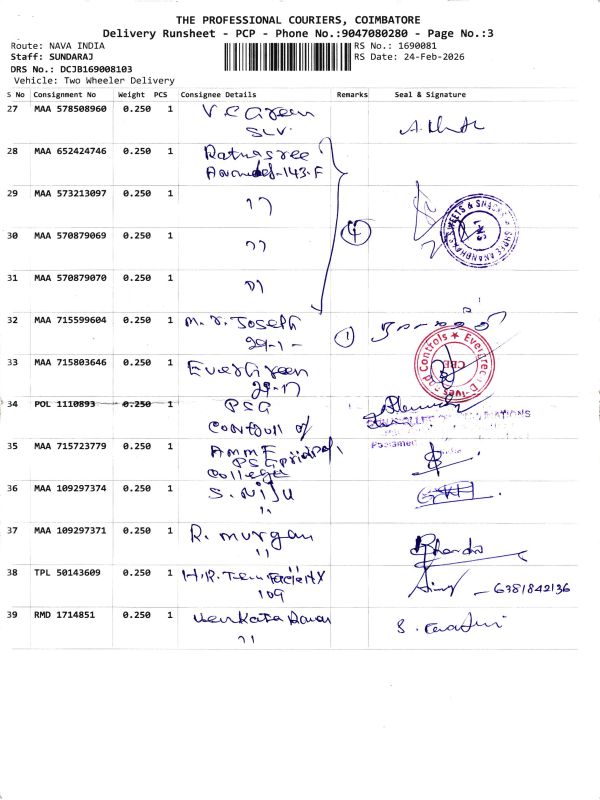 THE PROFESSIONAL COURIERS, COIMBATORE
Delivery Runsheet - PCP - Phone No.:9047080280 - Page No.:3
Route: NAVA INDIA RS No.: 1690081
Staff: SUNDARAJ RS Date: 24-Feb-2026
DRS No.: DCJB169008103
Vehicle: Two Wheeler Delivery
S No Consignment No Weight PCS Consignee Details Remarks Seal & Signature
27 MAA 578508960 0.250 1 V C Green
SLV
28 MAA 652424746 0.250 1 Ratnasree
143-F
29 MAA 573213097 0.250 1 11
4
SWEETS & SNACKS
30 MAA 570879069 0.250 1 11
31 MAA 570879070 0.250 1 11
32 MAA 715599604 0.250 1 M. J. Joseph
29-1- 1
33 MAA 715803646 0.250 1 Evergreen
29-17
Evergreen Drives and Controls
CBE
34 POL 1110893 0.250 1 PSG
of
35 MAA 715723779 0.250 1
PSG
College
36 MAA 109297374 0.250 1 S. Niju
11
37 MAA 109297371 0.250 1 R. Murgan
11
38 TPL 50143609 0.250 1 H.R. Team Facility
109 - 6381842136
39 RMD 1714851 0.250 1 Venkata
11